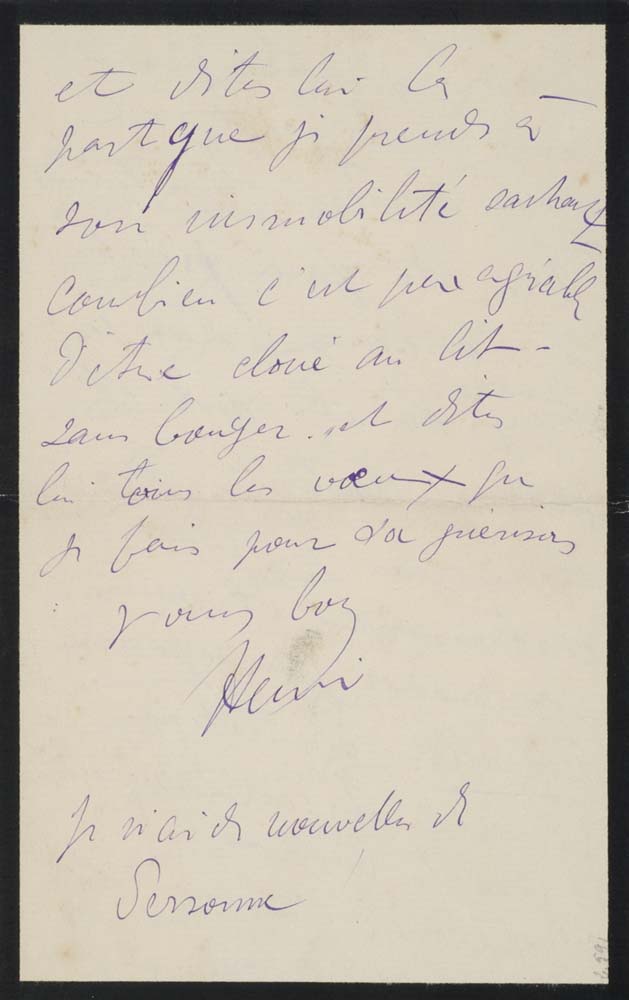 et dites lui la
part que je prends à
son immobilité sachant
combien c'est peu agréable
d'être cloué au lit -
sans bouger. et dites
lui tous les vœux que
je fais pour sa guérison
Henri
Je n'ai de nouvelles de
Personne